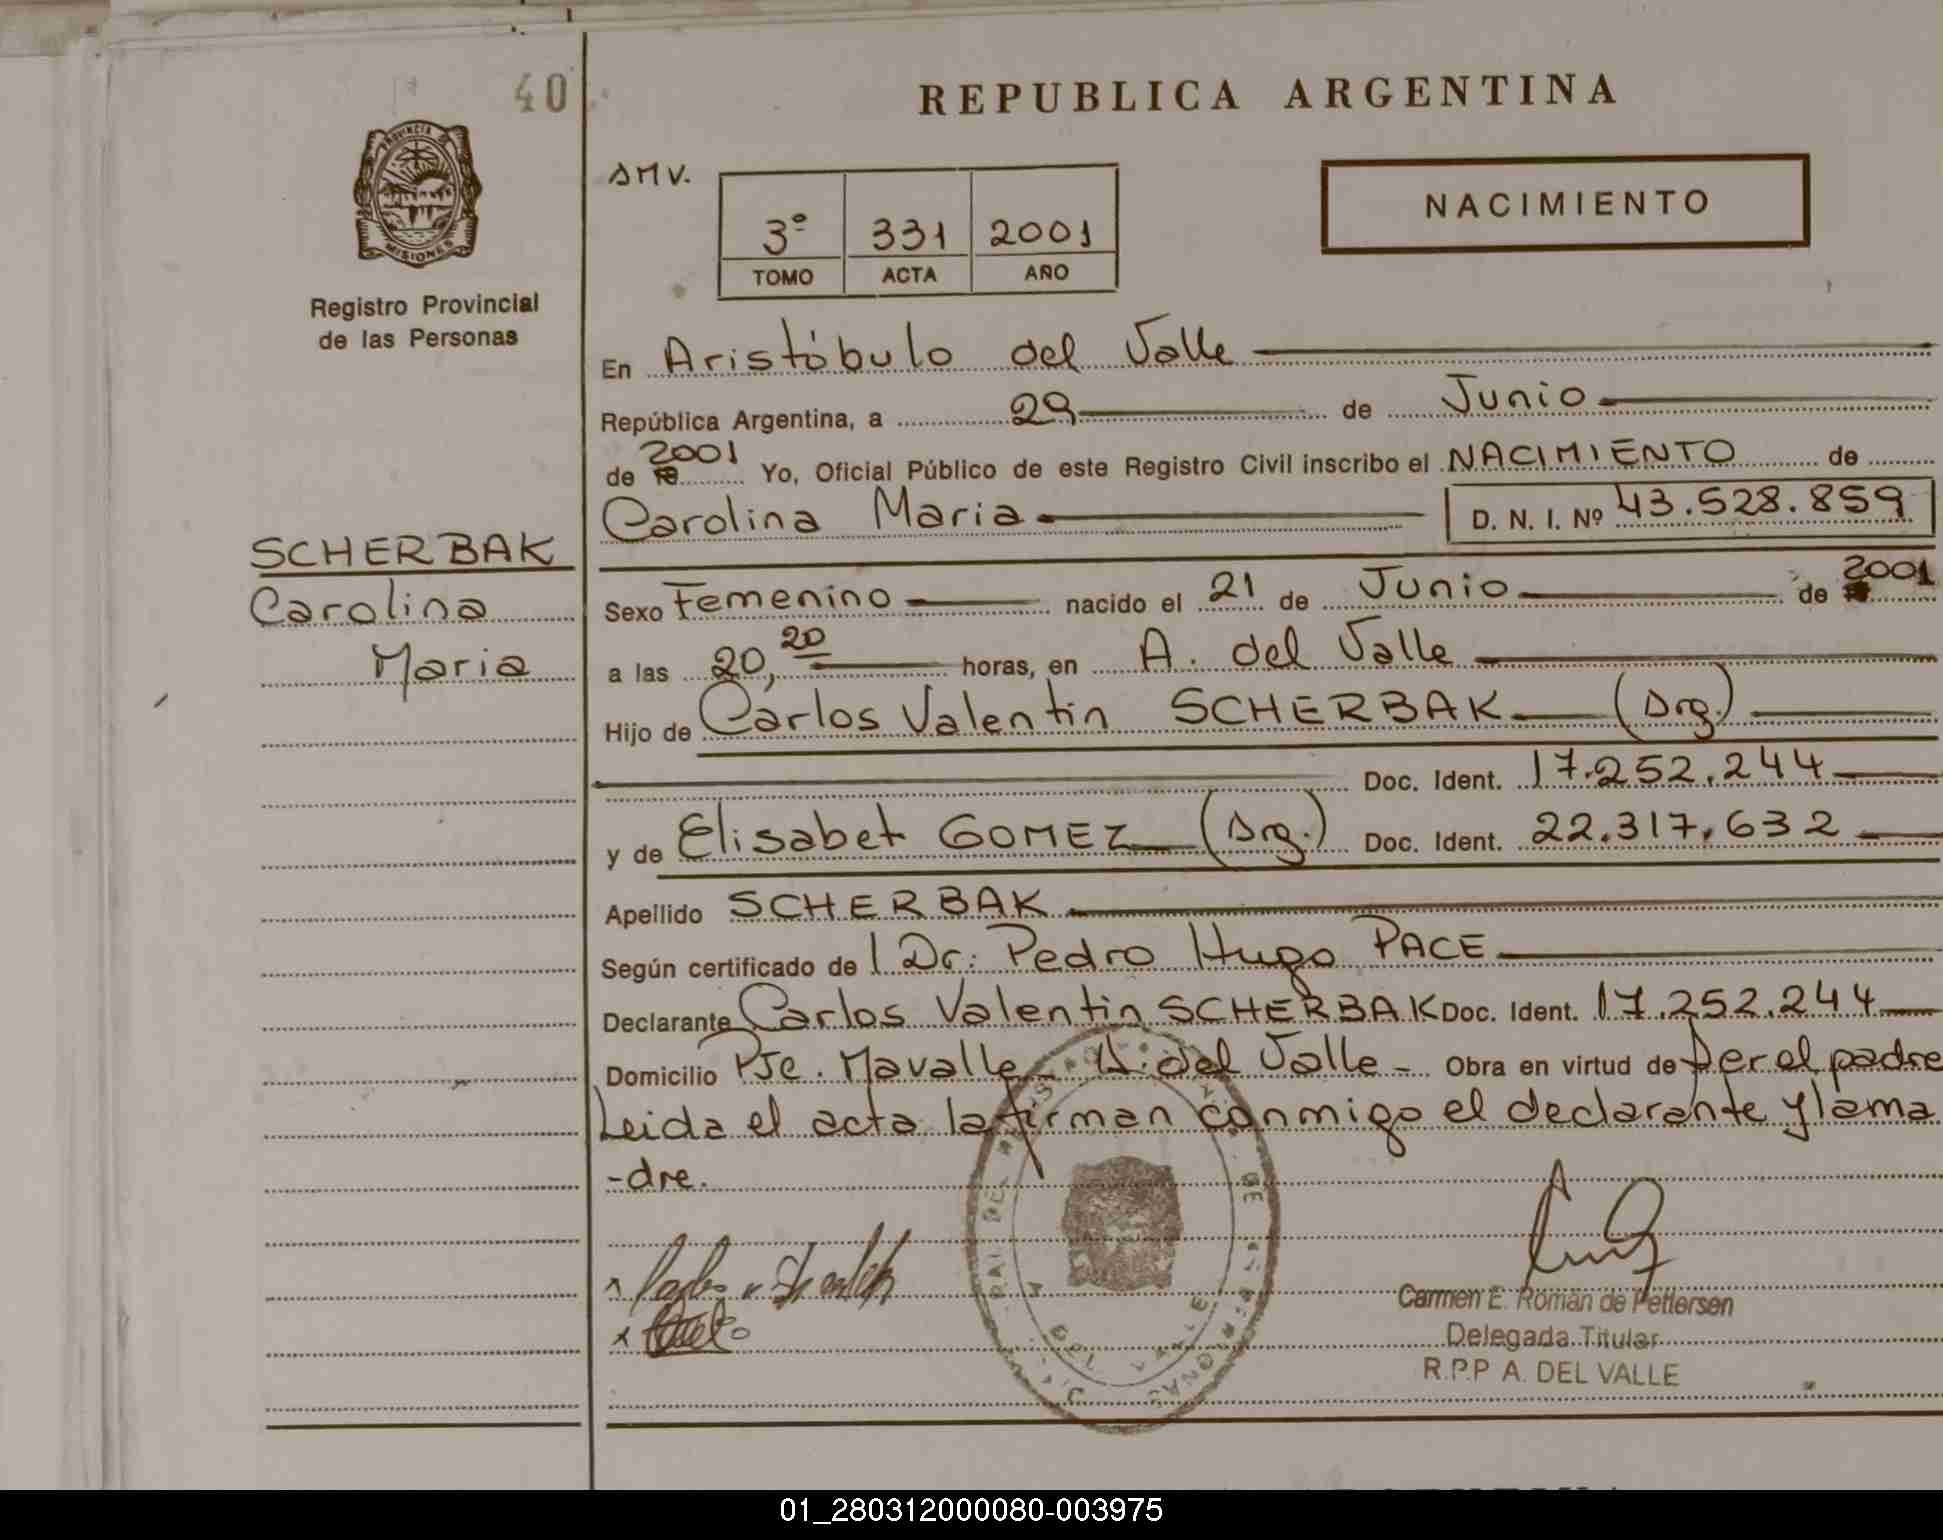 40
REPUBLICA ARGENTINA
PROVINCIA DE
MISIONES
Registro Provincial
de las Personas
SMV.
3º 331 2001
TOMO ACTA AÑO
NACIMIENTO
En Aristóbulo del Valle
República Argentina, a 29 de Junio
de 2001 Yo, Oficial Público de este Registro Civil inscribo el NACIMIENTO de
Carolina Maria D. N. I. Nº 43.528.859
SCHERBAK
Carolina
Maria
Sexo Femenino nacido el 21 de Junio de 2001
a las 20,20 horas, en A. del Valle
Hijo de Carlos Valentin SCHERBAK (Arg.)
Doc. Ident. 17.252.244
y de Elisabet GOMEZ (Arg.) Doc. Ident. 22.317.632
Apellido SCHERBAK
Según certificado de l Dr: Pedro Hugo PACE
Declarante Carlos Valentin SCHERBAK Doc. Ident. 17.252.244
Domicilio Pje. Mavalle - A. del Valle - Obra en virtud de ser el padre
Leida el acta la firman conmigo el declarante y la ma
-dre.
A. DEL VALLE
Carmen E. Román de Pettersen
Delegada Titular
R.P.P A. DEL VALLE
01_280312000080-003975